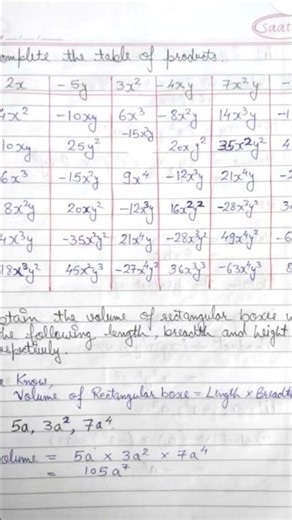 Saat
omplete the table of products.
2x -5y 3x² -4xy 7x²y
4x² -10xy 6x³ -8x²y 14x³y
10xy 25y² -15x²y 20xy² 35x²y²
6x³ -15x²y 9x⁴ -12x³y 21x⁴y
8x²y 20xy² -12x³y 16x²y² -28x³y²
4x³y -35x²y² 21x⁴y -28x³y² 49x⁴y²
18x³y² 45x²y³ -27x⁴y² 36x³y³ -63x⁴y³
btain the volume of rectangular boxes w
the following length, breadth and height
respectively.
Know,
Volume of Rectangular boxe = Length × Breadt
5a, 3a², 7a⁴.
volume = 5a × 3a² × 7a⁴
= 105a⁷